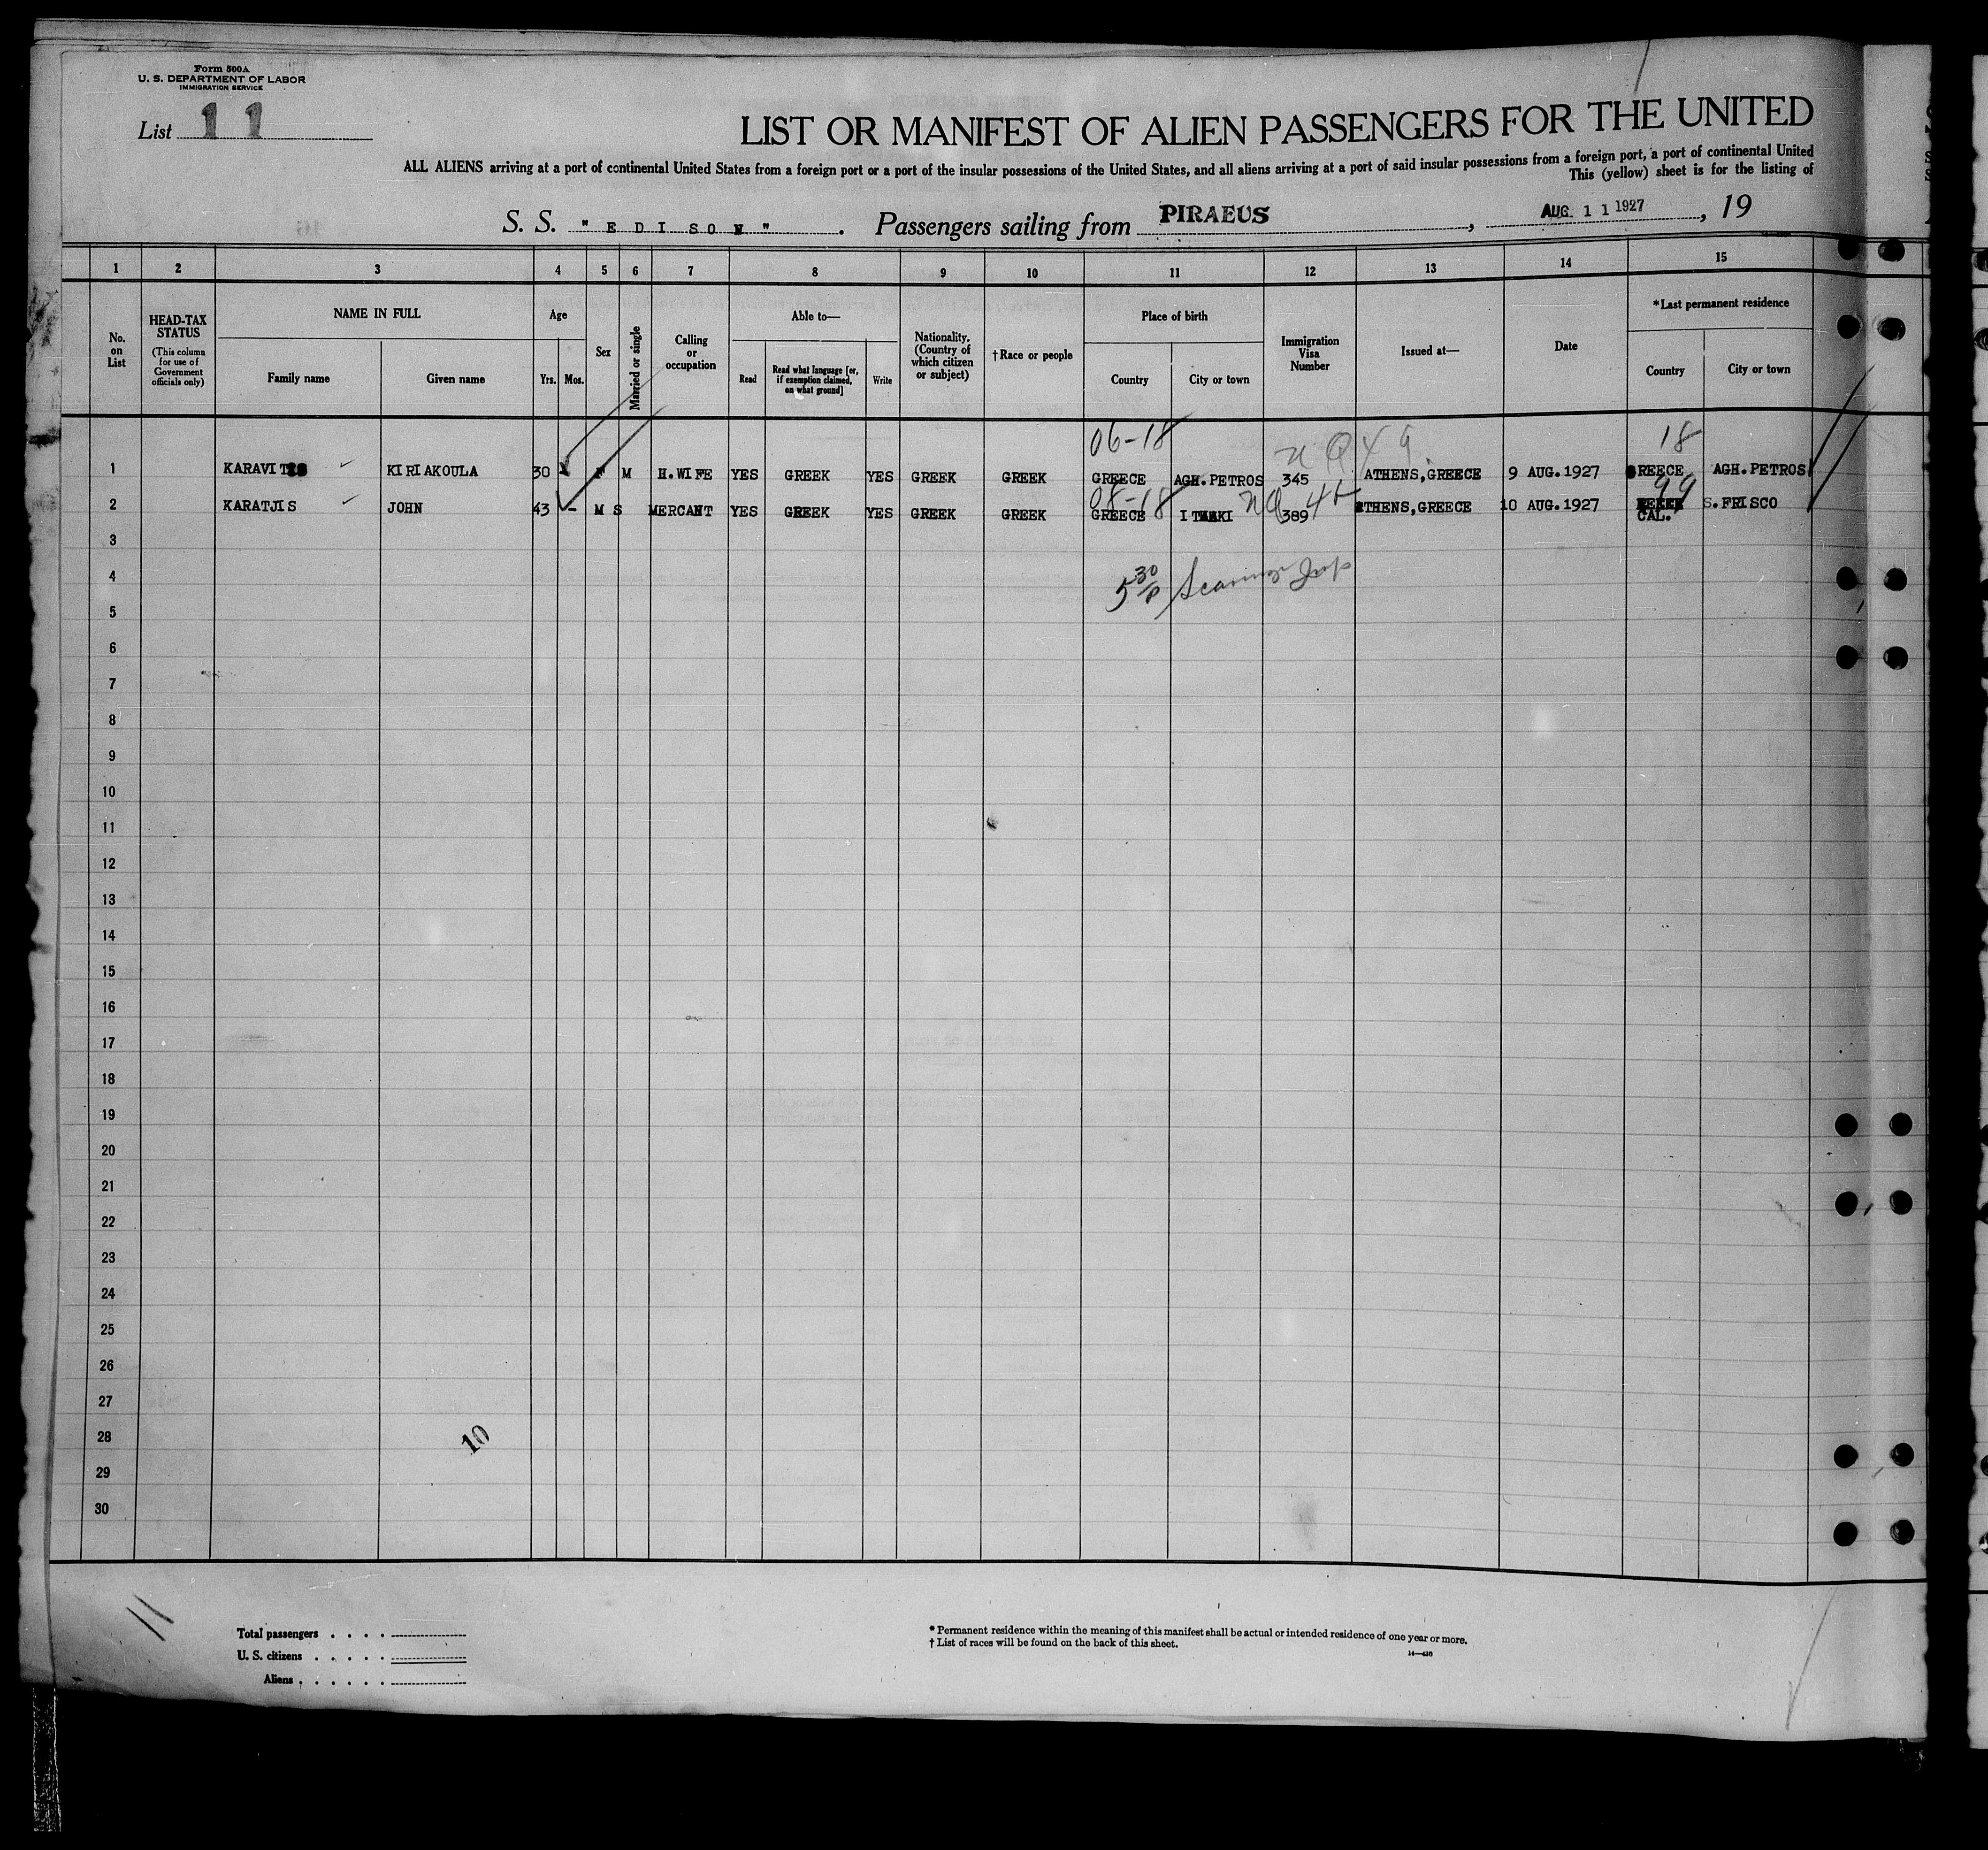 Form 500A
U. S. DEPARTMENT OF LABOR
IMMIGRATION SERVICE
List 11
LIST OR MANIFEST OF ALIEN PASSENGERS FOR THE UNITED
ALL ALIENS arriving at a port of continental United States from a foreign port or a port of the insular possessions of the United States, and all aliens arriving at a port of said insular possessions from a foreign port, a port of continental United
This (yellow) sheet is for the listing of
S. S. "EDISON". Passengers sailing from PIRAEUS, AUG. 11 1927, 19
1 2 3 4 5 6 7 8 9 10 11 12 13 14 15
No. on List
HEAD-TAX STATUS
(This column for use of Government officials only)
NAME IN FULL
Family name
Given name
Age
Yrs.
Mos.
Sex
Married or single
Calling or occupation
Able to—
Read
Read what language [or, if exemption claimed, on what ground]
Write
Nationality. (Country of which citizen or subject)
†Race or people
Place of birth
Country
City or town
Immigration Visa Number
Issued at—
Date
*Last permanent residence
Country
City or town
06-18 18
1 KIRIAKOULA 30 F M H.WIFE YES GREEK YES GREEK GREEK GREECE AGH.PETROS 345 ATHENS,GREECE 9 AUG.1927 GREECE AGH.PETROS
08-18 99
2 KARATJIS JOHN 43 - M S MERCANT YES GREEK YES GREEK GREEK GREECE 389 ATHENS,GREECE 10 AUG.1927 CAL. S.FRISCO
3
4
5 30
5
6
7
8
9
10
11
12
13
14
15
16
17
18
19
20
21
22
23
24
25
26
27
28
10
29
30
11
Total passengers
U. S. citizens
Aliens
* Permanent residence within the meaning of this manifest shall be actual or intended residence of one year or more.
† List of races will be found on the back of this sheet.
14—430